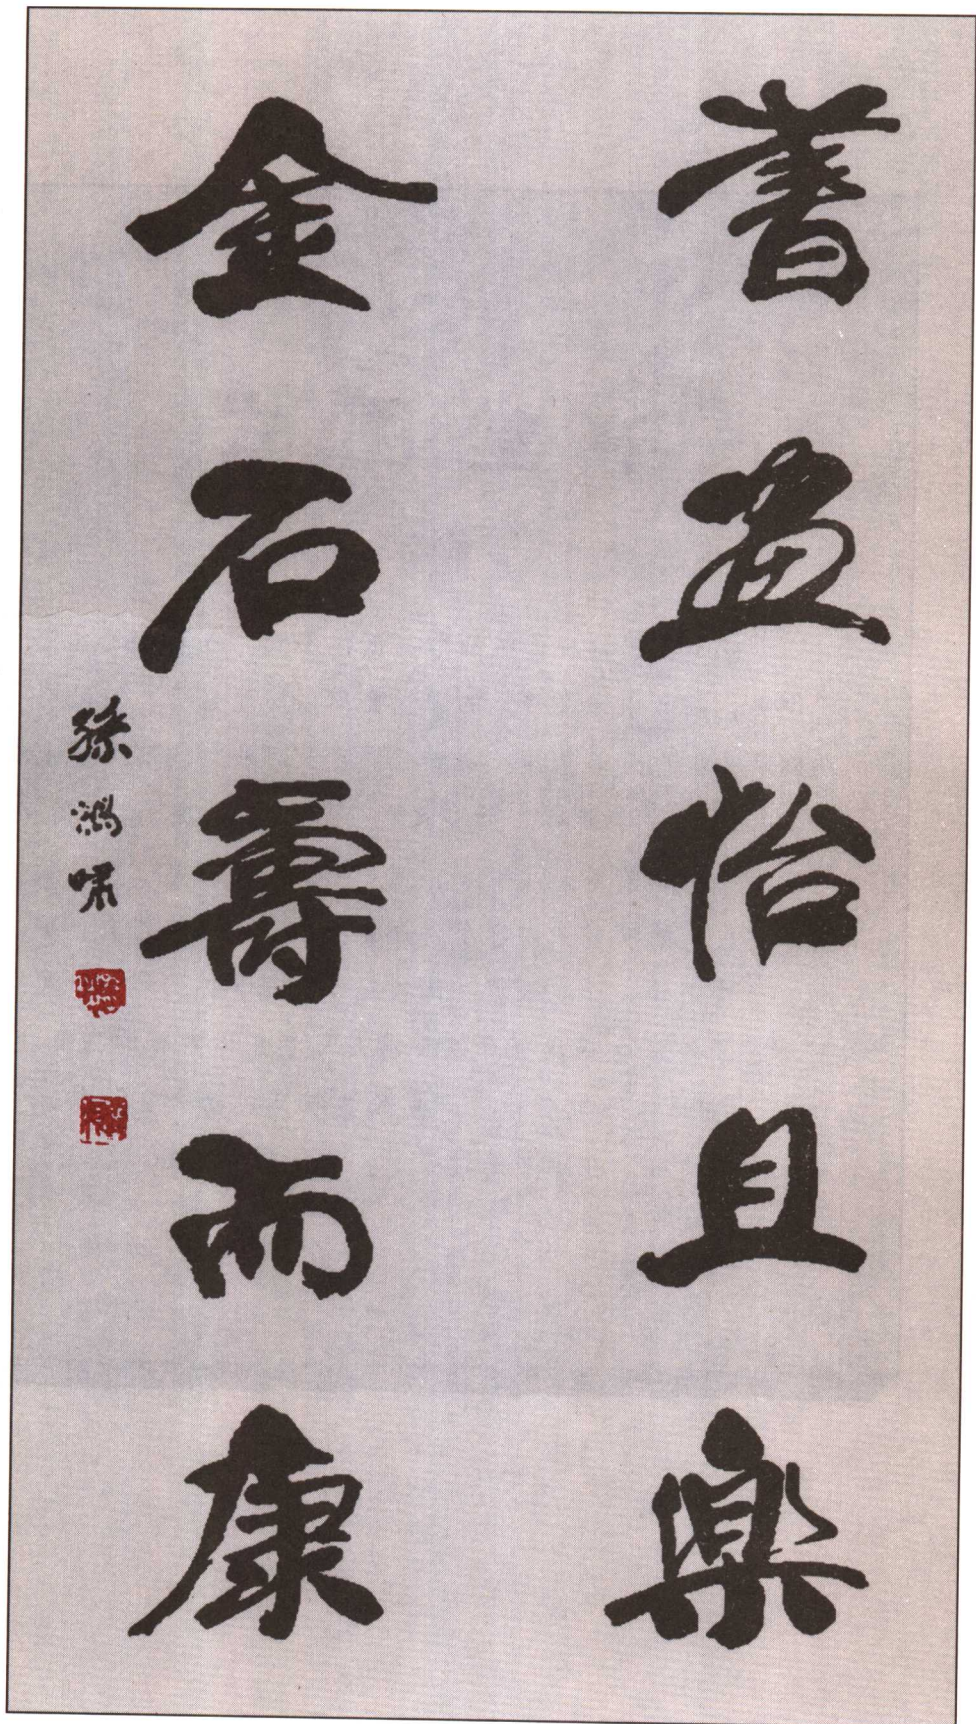 書画怡且樂
金石壽而康
孫鴻啸